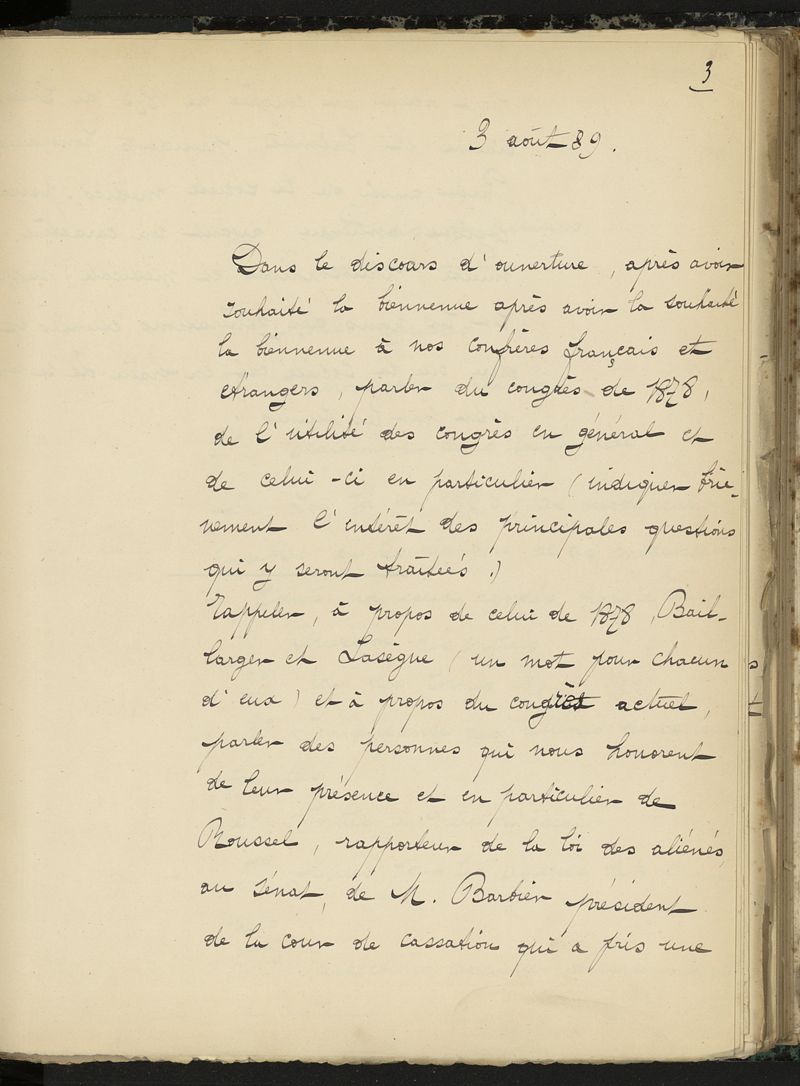 3
3 août 89.
Dans le discours d'ouverture, après avoir
souhaité la bienvenue après avoir la souhaité
la bienvenue à nos confrères français et
etrangers, parler du congrès de 1878,
de l'utilité des congrès en général et
de celui-ci en particulier (indiquer briè-
vement l'intérêt des principales questions
qui y seront traitées.)
Rappeler, à propos de celui de 1878, Bail-
larger et Lasègue (un mot pour chacun
d'eux) et à propos du congrès actuel,
parler des personnes qui nous honorent
de leur présence et en particulier de
Roussel, rapporteur de la loi des aliénés,
au sénat, de M. Barbier président
de la cour de cassation qui a pris une